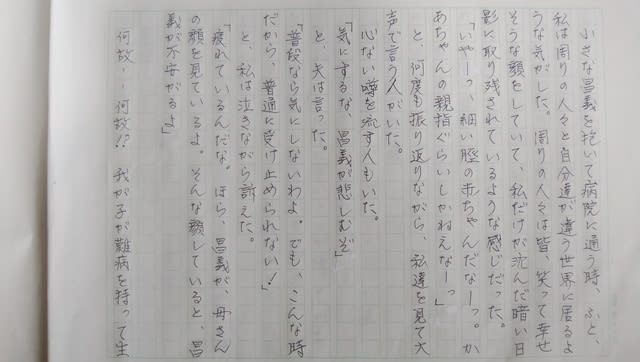 小さな昌義を抱いて病院に通う時、ふと、
私は周りの人々と自分達が違う世界に居るよ
うな気がした。周りの人々は皆、笑って幸せ
そうな顔をしていて、私だけが沈んだ暗い日
影に取り残されているような感じだった。
「いやーっ、細い脛の赤ちゃんだなーっ。か
あちゃんの親指ぐらいしかねえなーっ」
と、何度も振り返りながら、私達を見て大
声で言う人がいた。
心ない噂を流す人もいた。
「気にするな、昌義が悲しむぞ」
と、夫は言った。
「普段なら気にしないわよ。でも、こんな時
だから、普通に受け止められない!」
と、私は泣きながら訴えた。
「疲れているんだな。ほら、昌義が、母さん
の顔を見ているよ。そんな顔していると、昌
義が不安がるよ」
何故‥何故!? 我が子が難病を持って生